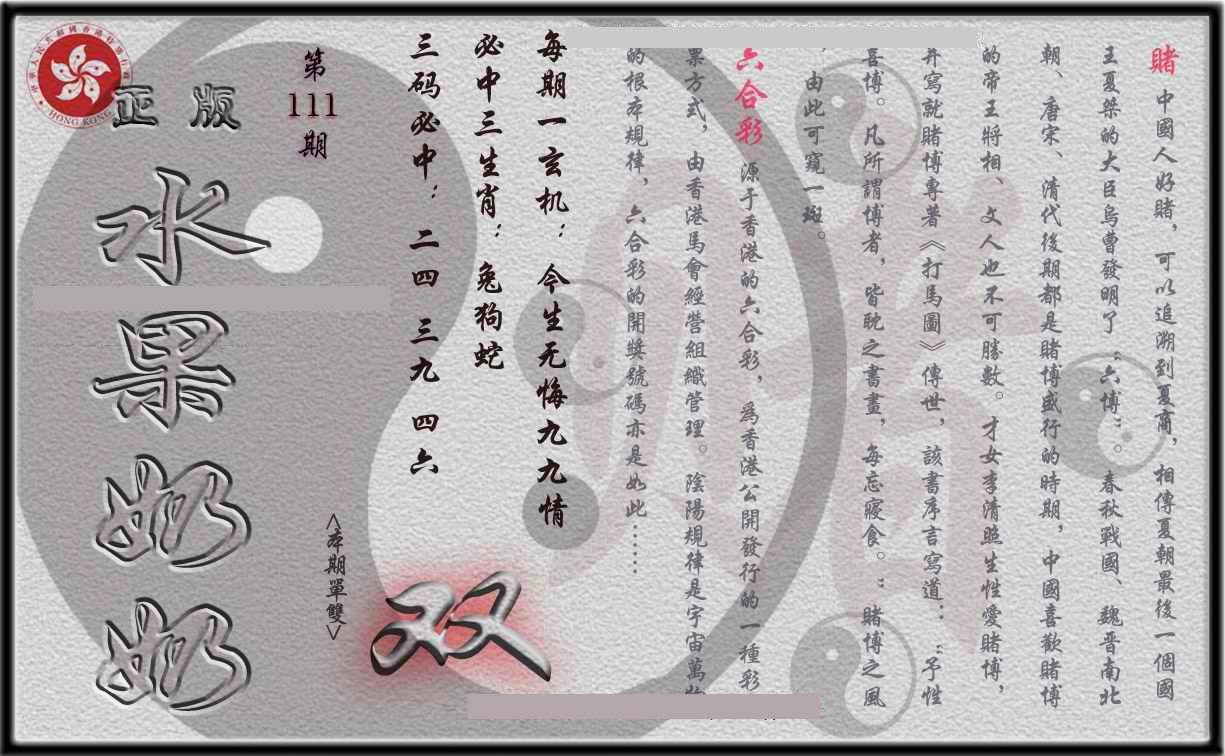 賭 中國人好賭，可以追溯到夏商，相傳夏朝最後一個國
王夏桀的大臣烏曹發明了“六博”。春秋戰國、魏晋南北
朝、唐宋、清代後期都是賭博盛行的時期，中國喜歡賭博
的帝王將相、文人也不可勝數。才女李清照生性愛賭博，
并寫就賭博專著《打馬圖》傳世，該書序言寫道：“予性
喜博。凡所謂博者，皆耽之書畫，每忘寢食。”賭博之風
，由此可窺一斑。
六合彩 源于香港的六合彩，爲香港公開發行的一種彩
票方式，由香港馬會經營組織管理。陰陽規律是宇宙萬物
的根本規律，六合彩的開獎號碼亦是如此……
每期一玄机：今生无悔九九情
必中三生肖：兔狗蛇
三码必中：二四 三九 四六
第
111
期
<本期單雙>
双
正版
水果奶奶
HONG KONG